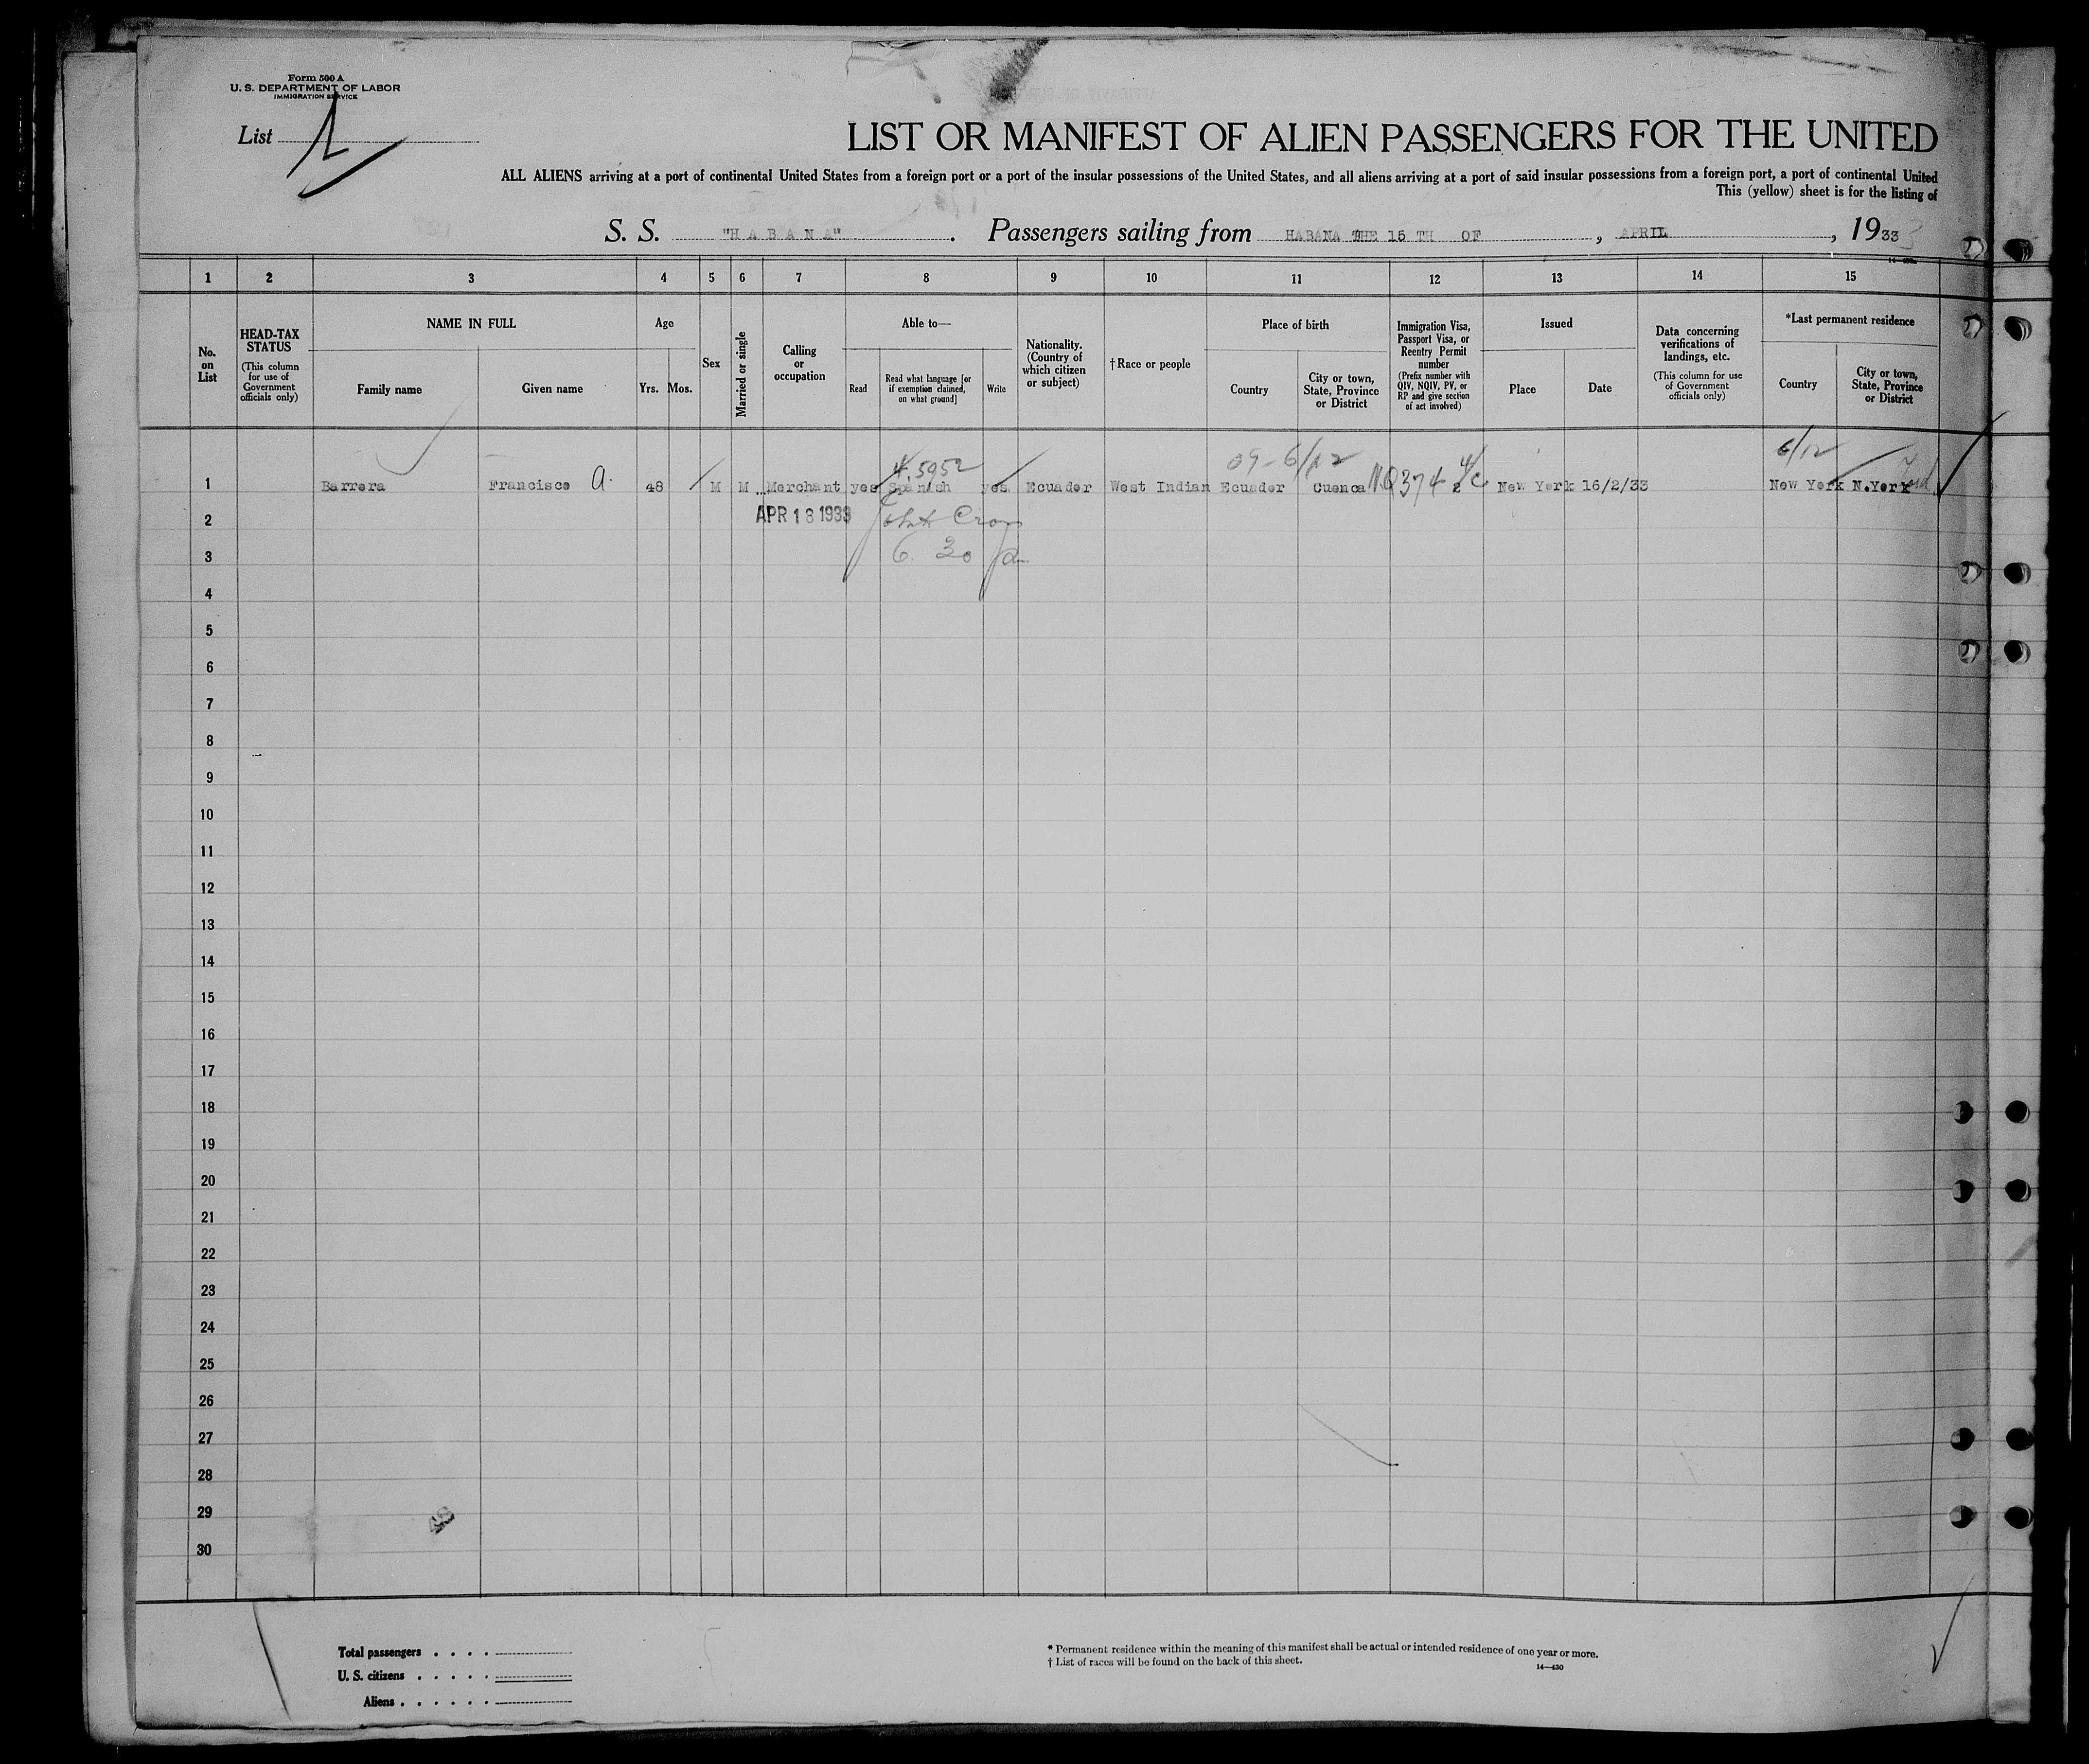 Form 500 A
U. S. DEPARTMENT OF LABOR
IMMIGRATION SERVICE
List
LIST OR MANIFEST OF ALIEN PASSENGERS FOR THE UNITED
ALL ALIENS arriving at a port of continental United States from a foreign port or a port of the insular possessions of the United States, and all aliens arriving at a port of said insular possessions from a foreign port, a port of continental United
This (yellow) sheet is for the listing of
S. S. "H A B A N A". Passengers sailing from HABANA THE 15 TH OF, APRIL, 1933
1 2 3 4 5 6 7 8 9 10 11 12 13 14 15
No. on List
HEAD-TAX STATUS
(This column for use of Government officials only)
NAME IN FULL
Family name
Given name
Age
Yrs. Mos.
Sex
Married or single
Calling or occupation
Able to—
Read
Read what language [or if exemption claimed, on what ground]
Write
Nationality. (Country of which citizen or subject)
†Race or people
Place of birth
Country
City or town, State, Province or District
Immigration Visa, Passport Visa, or Reentry Permit number
(Prefix number with QIV, NQIV, PV, or RP and give section of act involved)
Issued
Place
Date
Data concerning verifications of landings, etc.
(This column for use of Government officials only)
*Last permanent residence
Country
City or town, State, Province or District
4/5952
09-6/12
6/12
1 Barrera Francisco A. 48 M M Merchant yes Spanish yes Ecuador West Indian Ecuador Cuenca NQ374 New York 16/2/33 New York N.York
2 APR 18 1933
3 6 30
4
5
6
7
8
9
10
11
12
13
14
15
16
17
18
19
20
21
22
23
24
25
26
27
28
29
30
Total passengers
U. S. citizens
Aliens
* Permanent residence within the meaning of this manifest shall be actual or intended residence of one year or more.
† List of races will be found on the back of this sheet.
14—430